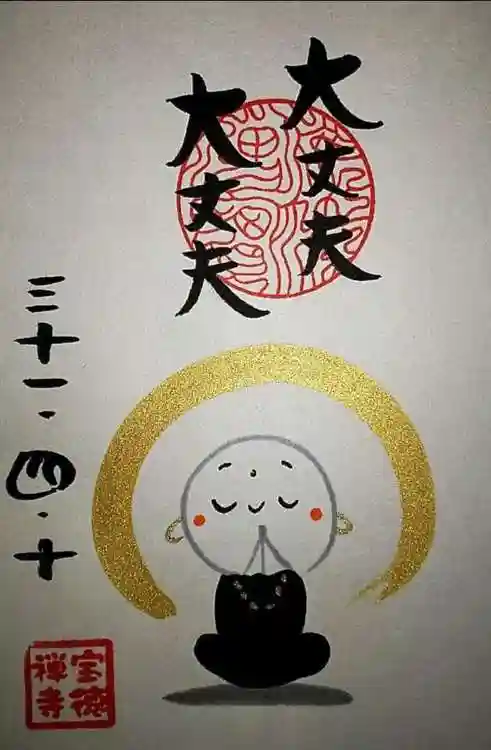 大丈夫
大丈夫
三十一.四.十
宝徳
禅寺